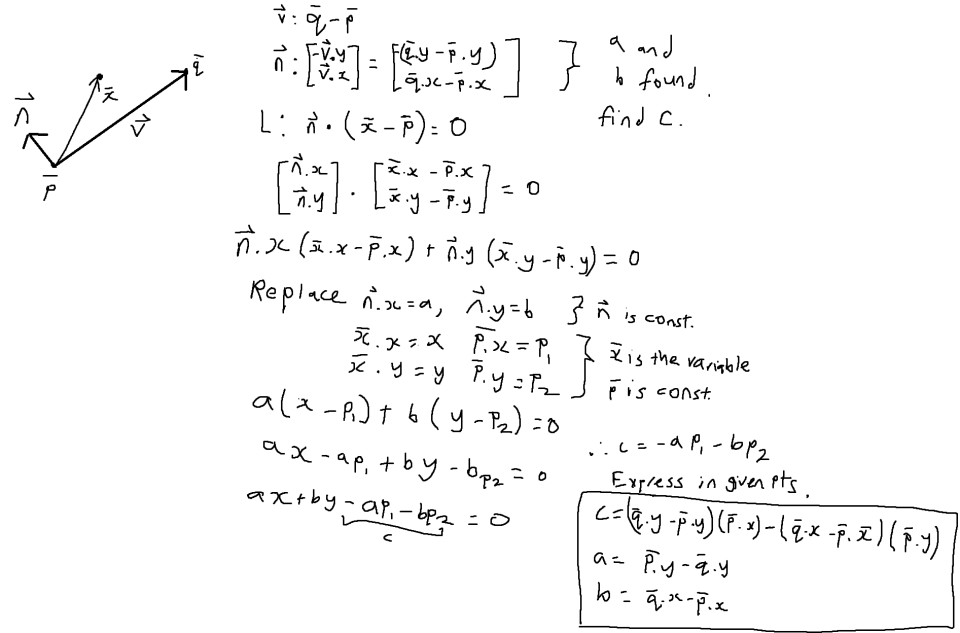 v⃗: q̄ - p̄
n⃗: [-v⃗.y v⃗.x] = [-(q̄.y - p̄.y) q̄.x - p̄.x] } a and b found. find c.
L: n⃗ • (x̄ - p̄) = 0
[n⃗.x n⃗.y] · [x̄.x - p̄.x x̄.y - p̄.y] = 0
n⃗.x (x̄.x - p̄.x) + n⃗.y (x̄.y - p̄.y) = 0
Replace n⃗.x = a, n⃗.y = b } n⃗ is const.
x̄.x = x p̄.x = p₁ } x̄ is the variable
x̄.y = y p̄.y = p₂ p̄ is const.
a(x - p₁) + b(y - p₂) = 0
ax - ap₁ + by - bp₂ = 0
ax + by - ap₁ - bp₂ = 0
c
∴ c = -ap₁ - bp₂
Express in given pts.
c = (q̄.y - p̄.y)(p̄.x) - (q̄.x - p̄.x̄)(p̄.y)
a = p̄.y - q̄.y
b = q̄.x - p̄.x
n⃗
x̄
q̄
v⃗
p̄